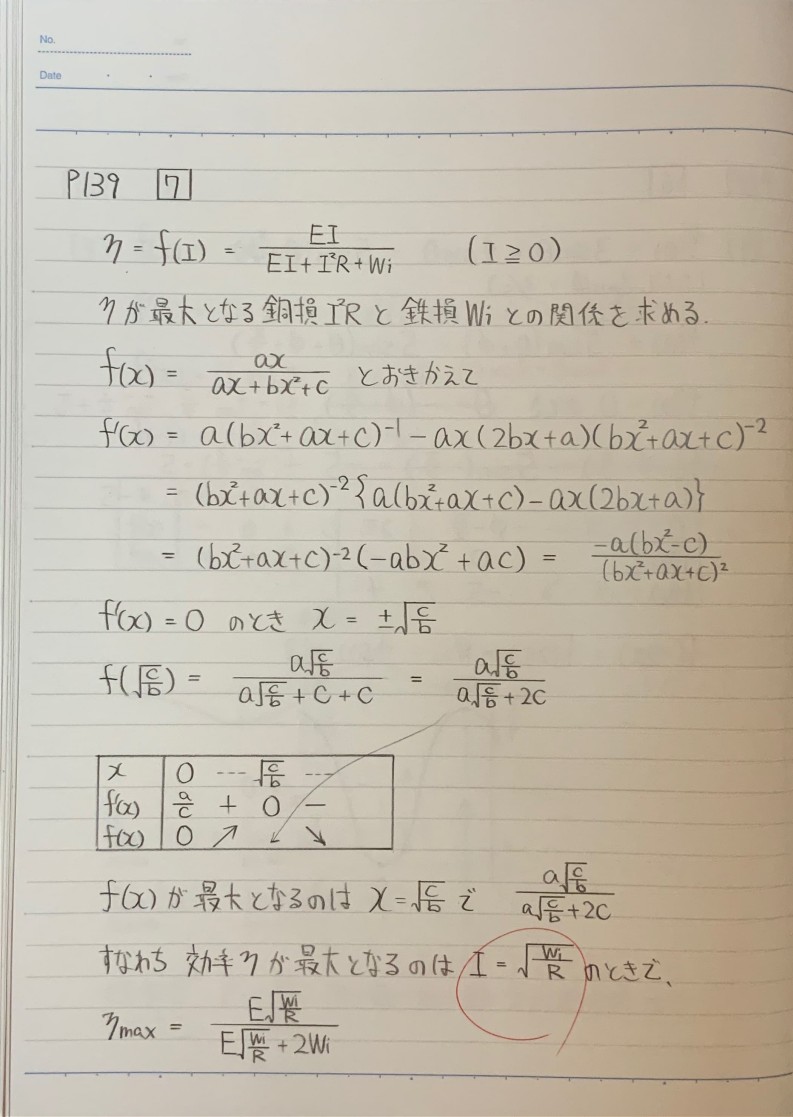 No.
Date
P139 7
η = f(I) = EI / (EI + I²R + Wi) (I ≧ 0)
ηが最大となる銅損I²Rと鉄損Wiとの関係を求める.
f(x) = ax / (ax + bx² + c) とおきかえて
f'(x) = a(bx² + ax + c)⁻¹ − ax(2bx + a)(bx² + ax + c)⁻²
= (bx² + ax + c)⁻²{a(bx² + ax + c) − ax(2bx + a)}
= (bx² + ax + c)⁻²(−abx² + ac) = −a(bx² − c) / (bx² + ax + c)²
f'(x) = 0 のとき x = ±√(c/b)
f(√(c/b)) = a√(c/b) / (a√(c/b) + c + c) = a√(c/b) / (a√(c/b) + 2c)
x 0 … √(c/b) …
f'(x) a/c + 0 −
f(x) 0 ↗ ↙ ↘
f(x)が最大となるのは x = √(c/b) で a√(c/b) / (a√(c/b) + 2c)
すなわち 効率ηが最大となるのは I = √(Wi/R) のときで、
ηmax = E√(Wi/R) / (E√(Wi/R) + 2Wi)